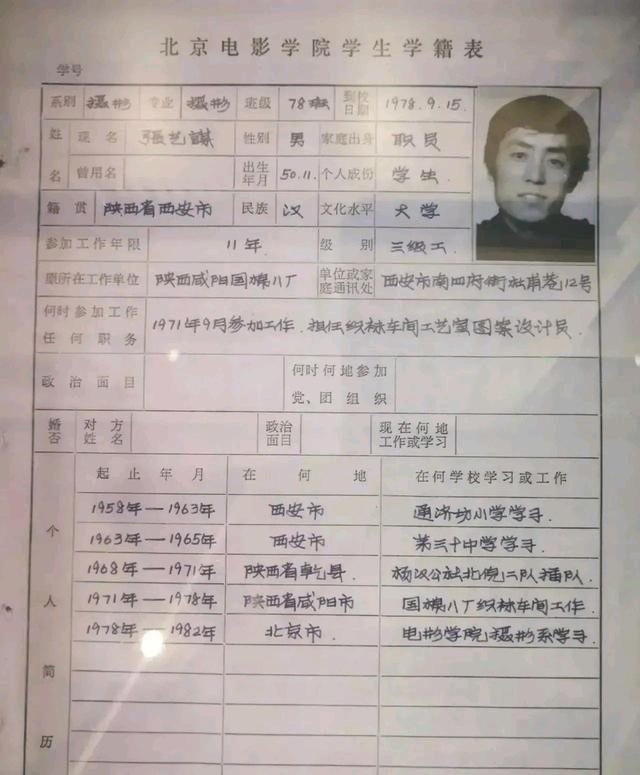 北京电影学院学生学籍表
学号
系别 摄影 专业 摄影 班级 78班 到校日期 1978.9.15.
姓名 现名 張艺謀 性别 男 家庭出身 职员
曾用名 出生年月 50.11. 个人成份 学生
籍贯 陕西省西安市 民族 汉 文化水平 大学
参加工作年限 11年 级别 三级工
原所在工作单位 陕西咸阳国棉八厂 单位或家庭通讯处 西安市南四府街杜甫巷12号
何时参加工作任何职务 1971年9月参加工作.担任织袜车间工艺室图案设计员.
政治面目 何时何地参加党、团组织
婚否 对方姓名 政治面目 现在何地工作或学习
个人简历
起止年月 在何地 在何学校学习或工作
1958年—1963年 西安市 通济坊小学学习
1963年—1965年 西安市 第三十中学学习.
1968年—1971年 陕西省乾县. 杨汉公社北倪二队插队.
1971年—1978年 陕西省咸阳市 国棉八厂织袜车间工作.
1978年—1982年 北京市. 电影学院摄影系学习.